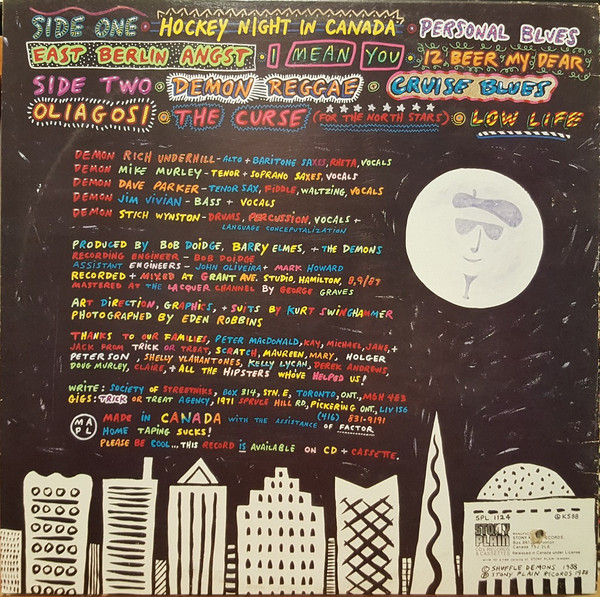 SIDE ONE • HOCKEY NIGHT IN CANADA • PERSONAL BLUES
EAST BERLIN ANGST • I MEAN YOU • 12 BEER MY DEAR
SIDE TWO • DEMON REGGAE • CRUISE BLUES
OLIAGOSI • THE CURSE (FOR THE NORTH STARS) • LOW LIFE
DEMON RICH UNDERHILL - ALTO + BARITONE SAXES, RHETA, VOCALS
DEMON MIKE MURLEY - TENOR + SOPRANO SAXES, VOCALS
DEMON DAVE PARKER - TENOR SAX, FIDDLE, WALTZING, VOCALS
DEMON JIM VIVIAN - BASS + VOCALS
DEMON STICH WYNSTON - DRUMS, PERCUSSION, VOCALS +
LANGUAGE CONCEPUTALIZATION
PRODUCED BY BOB DOIDGE, BARRY ELMES, + THE DEMONS
RECORDING ENGINEER - BOB DOIDGE
ASSISTANT ENGINEERS - JOHN OLIVEIRA + MARK HOWARD
RECORDED + MIXED AT GRANT AVE. STUDIO, HAMILTON, 8,9/87
MASTERED AT THE LACQUER CHANNEL BY GEORGE GRAVES
ART DIRECTION, GRAPHICS, + SUITS BY KURT SWINGHAMMER
PHOTOGRAPHED BY EDEN ROBBINS
THANKS TO OUR FAMILIES, PETER MACDONALD, KAY, MICHAEL, JANE, +
JACK FROM TRICK OR TREAT, SCRATCH, MAUREEN, MARY, HOLGER
PETERSON, SHELLY VLAHANTONES, KELLY LYCAN, DEREK ANDREWS,
DOUG MURLEY, CLAIRE, + ALL THE HIPSTERS WHOVE HELPED US!
WRITE: SOCIETY OF STREETNIKS, BOX 314, STN. E, TORONTO, ONT., M6H 4E3
GIGS: TRICK OR TREAT AGENCY, 1971 SPRUCE HILL RD., PICKERING ONT., L1V 1S6
(416) 831-9191
MAPL MADE IN CANADA WITH THE ASSISTANCE OF FACTOR
HOME TAPING SUCKS!
PLEASE BE COOL... THIS RECORD IS AVAILABLE ON CD + CASSETTE.
SPL 1124 ⓟKS88
STONY PLAIN
© SHUFFLE DEMONS 1988
ⓟ STONY PLAIN RECORDS 1988